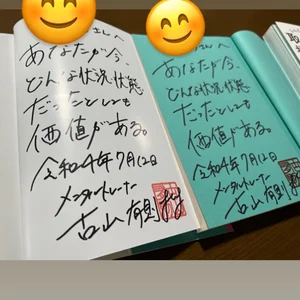 さんへ
あなたが今、
どんな状況状態
だったとしても
価値がある。
令和4年7月12日
メンタルトレーナー
古山有則
さんへ
あなたが今、
どんな状況状態
だったとしても
価値がある。
令和4年7月12日
メンタルトレーナー
古山有則